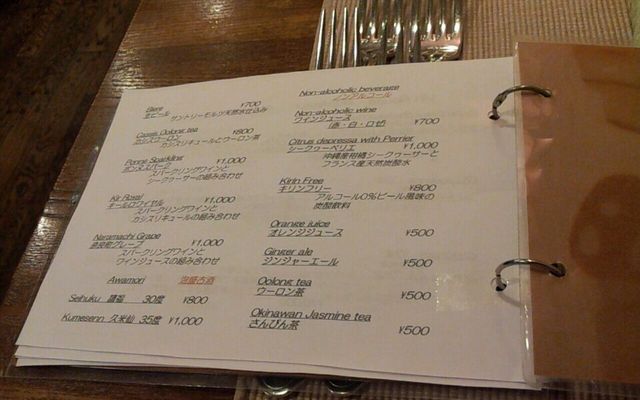 Biere ¥700
生ビール サントリーモルツ天然水仕込み
Cassis Oolong tea ¥800
カシスウーロン
カシスリキュールとウーロン茶
Ponne Sparkling ¥1,000
ポンヌスパーク
スパークリングワインと
シークヮーサーの組み合わせ
Kir Royal ¥1,000
キールロワイヤル
スパークリングワインと
カシスリキュールの組み合わせ
Naramachi Grape
グレープ ¥1,000
スパークリングワインと
ワインジュースの組み合わせ
Awamori 泡盛古酒
Seihuku 30度 ¥800
Kumesenn 久米仙 35度 ¥1,000
Non-alcoholic beverage
ノンアルコール
Non-alcoholic wine
ワインジュース ¥700
(赤・白・ロゼ)
Citrus depressa with Perrier
シークヮーペリエ ¥1,000
沖縄産柑橘シークヮーサーと
フランス産天然炭酸水
Kirin Free
キリンフリー ¥800
アルコール0%ビール風味の
炭酸飲料
Orange juice
オレンジジュース ¥500
Ginger ale
ジンジャーエール ¥500
Oolong tea
ウーロン茶 ¥500
Okinawan Jasmine tea
さんぴん茶 ¥500